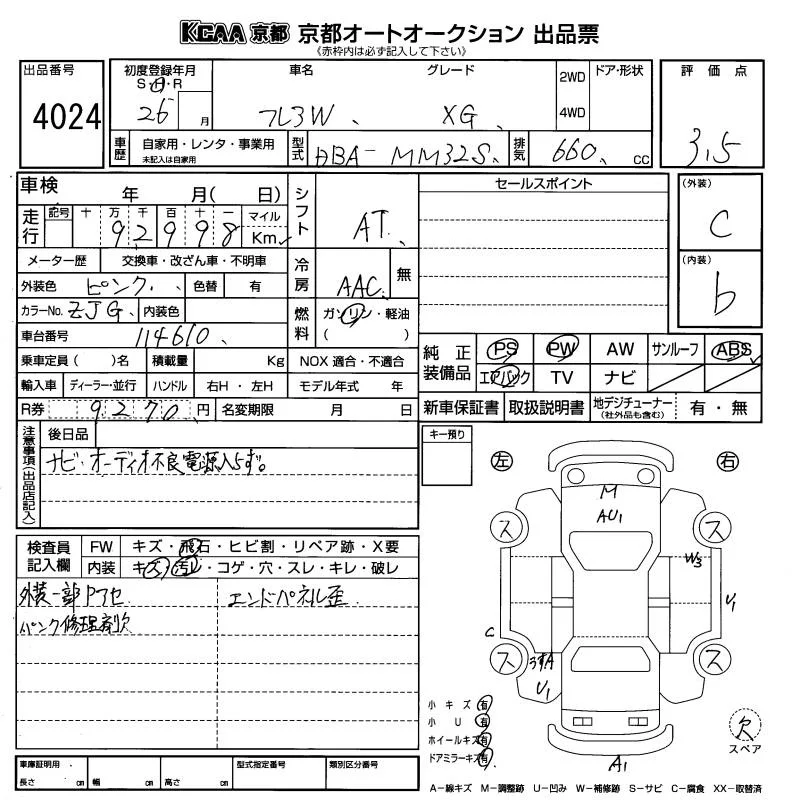 KCAA 京都 京都オートオークション 出品票
《赤枠内は必ず記入して下さい》
出品番号
4024
初度登録年月
S・H・R
26 月
車名
フレ3W
グレード
XG
2WD
4WD
ドア・形状
評価点
3.5
車歴
自家用・レンタ・事業用
未記入は自家用
型式
DBA-MM32S
排気
660 cc
車検 年 月( 日)
シフト
AT
セールスポイント
(外装)
C
走行
記号 十 万 千 百 十 一 マイル
9 2 9 9 8 Km
メーター歴 交換車・改ざん車・不明車
冷房
AAC
無
(内装)
b
外装色 ピンク 色替 有
カラーNo. ZJG 内装色
燃料
ガソリン・軽油
( )
車台番号 114610
純正装備品
PS PW AW サンルーフ ABS
エアバック TV ナビ
乗車定員 ( )名 積載量 Kg NOX 適合・不適合
輸入車 ディーラー・並行 ハンドル 右H・左H モデル年式 年
R券 9270 円 名変期限 月 日
新車保証書 取扱説明書 地デジチューナー (社外品も含む) 有・無
注意事項(出品店記入)
後日品
ナビ・オーディオ不良電源入らず。
キー預り
左 右
M
AU1
ス ス
W3
U1
C
ス ス
うすA
U1
A1
検査員記入欄
FW キズ・飛石・ヒビ割・リペア跡・X要
内装 キズ・汚レ・コゲ・穴・スレ・キレ・破レ
外装一部アセ
エンドパネル歪
パンク修理剤欠
小キズ 有
小U 有
ホイールキズ 有
ドアミラーキズ 有
欠
スペア
車庫証明用
長さ cm 幅 cm 高さ cm
型式指定番号
類別区分番号
A-線キズ M-調整跡 U-凹み W-補修跡 S-サビ C-腐食 XX-取替済